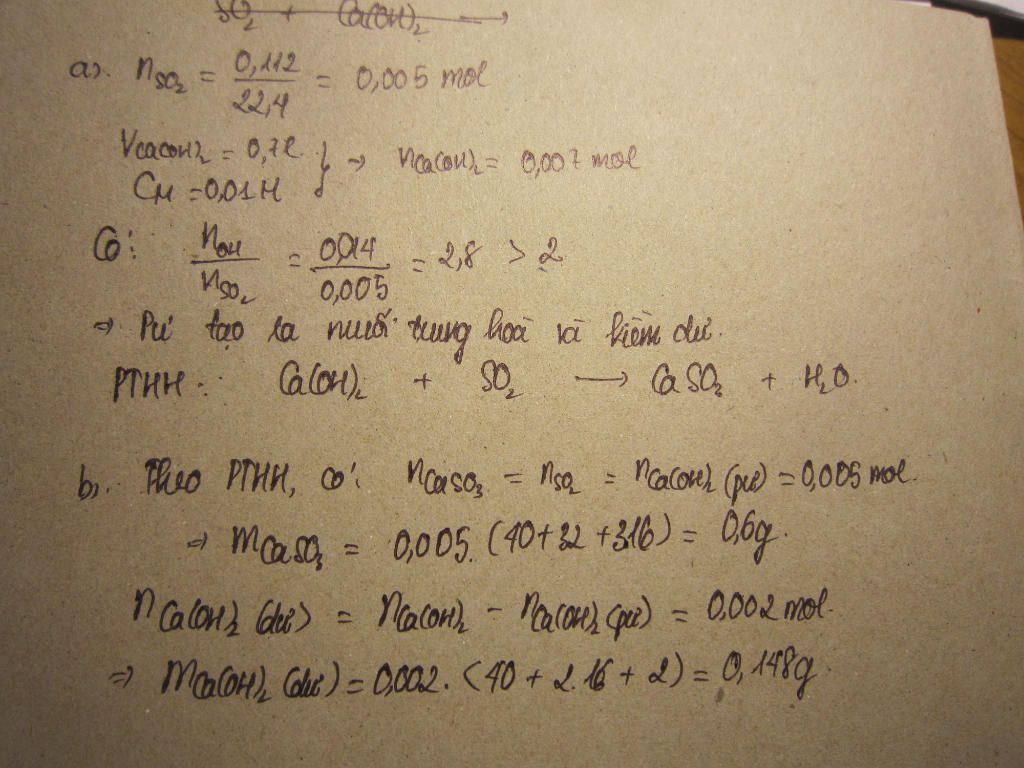 SO₂ + Ca(OH)₂ →
a). nSO₂ = 0,112 / 22,4 = 0,005 mol
VCa(OH)₂ = 0,7l
CM = 0,01M } → nCa(OH)₂ = 0,007 mol
Có: nOH / nSO₂ = 0,014 / 0,005 = 2,8 > 2
⇒ Pư tạo ra muối trung hoà và kiềm dư.
PTHH: Ca(OH)₂ + SO₂ → CaSO₃ + H₂O.
b). Theo PTHH, có: nCaSO₃ = nSO₂ = nCa(OH)₂ (pư) = 0,005 mol.
⇒ mCaSO₃ = 0,005. (40+32+3.16) = 0,6g.
nCa(OH)₂ (dư) = nCa(OH)₂ - nCa(OH)₂ (pư) = 0,002 mol.
⇒ mCa(OH)₂ (dư) = 0,002. (40 + 2.16 + 2) = 0,148g.